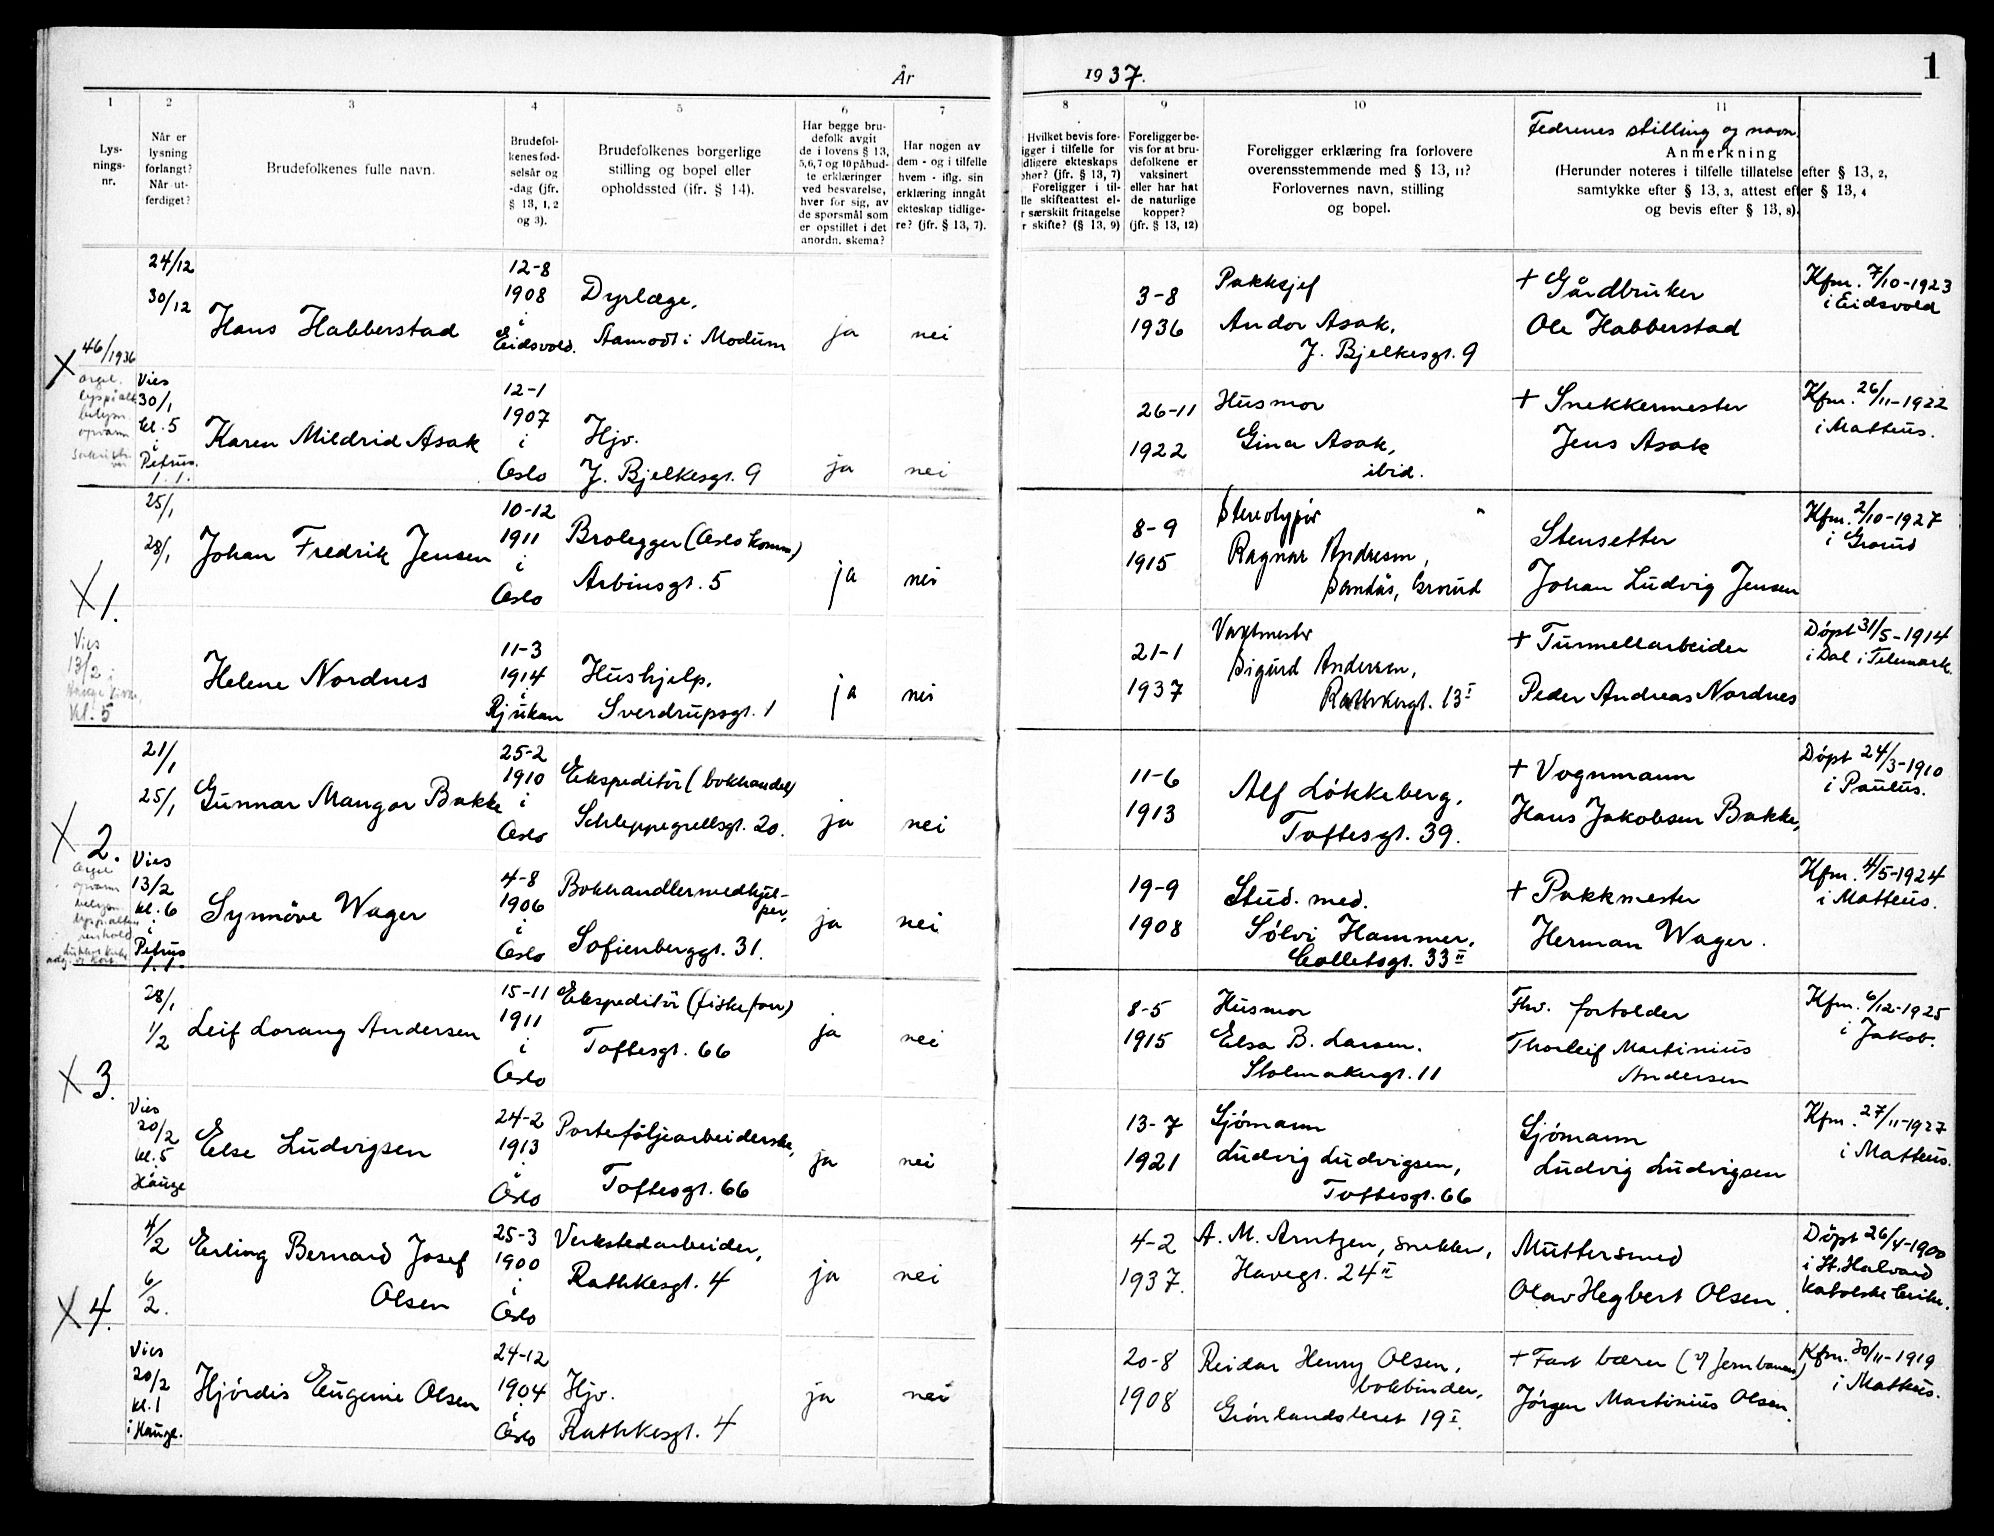 År
1937.
1
1
2
3
4
5
6
7
8
9
10
11
Lys-
nings-
nr.
Når er
lysning
forlangt?
Når ut-
ferdiget?
Brudefolkenes fulle navn.
Brudefol-
kenes fød-
selsår og
-dag (jfr.
§ 13, 1, 2
og 3).
Brudefolkenes borgerlige
stilling og bopel eller
opholdssted (ifr. § 14).
Har begge bru-
defolk avgit
de i lovens § 13,
5, 6, 7 og 10 påbud-
te erklæringer
ved besvarelse,
hver for sig, av
de spørsmål som
er opstillet i det
anordn. skema?
Har nogen av
dem - og i tilfelle
hvem - iflg. sin
erklæring inngått
ekteskap tidlige-
re? (jfr. § 13, 7).
Hvilket bevis fore-
igger i tilfelle for
idligere ekteskaps
phør? (jfr. § 13, 7)
Foreligger i til-
lle skifteattest el-
r særskilt fritagelse
r skifte? (§ 13, 9)
Foreligger be-
vis for at bru-
defolkene er
vaksinert
eller har hat
de naturlige
kopper?
(jfr. § 13, 12)
Foreligger erklæring fra forlovere
overensstemmende med § 13, 11?
Forlovernes navn, stilling
og bopel.
Fedrenes stilling og navn.
Anmerkning
(Herunder noteres i tilfelle tillatelse efter § 13, 2,
samtykke efter § 13, 3, attest efter § 13, 4
og bevis efter § 13, 8).
X 46/1936
24/12
30/12
Hans Habberstad
12-8
1908
i
Eidsvold.
Dyrlæge,
Aamodt i Modum
ja
nei
3-8
1936
Pakksjef
Andor Asak,
J. Bjelkesgt. 9
+ Gårdbruker
Ole Habberstad
Kfm. 7/10-1923
i Eidsvold
Vies
30/1
kl. 5
i
Petrus.
Karen Mildrid Asak
12-1
1907
i
Oslo
Hjv.
J. Bjelkesgt. 9
ja
nei
26-11
1922
Husmor
Gina Asak,
ibid.
+ Snekkermester
Jens Asak
Kfm. 26/11-1922
i Matteus.
X 1.
25/1
28/1
Johan Fredrik Jensen
10-12
1911
i
Oslo
Brolegger (Oslo komm)
Arbinsgt. 5
ja
nei
8-9
1915
Stereotypør
Ragnar Andresen,
Sandås, Grorud
Stensetter
Johan Ludvig Jensen
Kfm. 2/10-1927
i Grorud
Vies
13/2 i
kl. 5
Helene Nordnes
11-3
1914
i
Rjukan
Hushjelp.
Sverdrupsgt. 1
ja
nei
21-1
1937
Vaktmester
Sigurd Andersen,
Rathkesgt. 13 I
+ Tunnellarbeider
Peder Andreas Nordnes
Döpt 31/5-1914
i Dal i Telemark.
X 2.
21/1
25/1
Gunnar Mangor Bakke
25-2
1910
i
Oslo
Ekspeditör (bokhandel)
Schleppegrellsgt. 20.
ja
nei
11-6
1913
Alf Lökkeberg,
Toftesgt. 39.
+ Vognmann
Hans Jakobsen Bakke,
Döpt 24/3-1910
i Paulus.
Vies
13/2
kl. 6
i
Petrus
Synnöve Wager
4-8
1906
i
Oslo
Bokhandlermedhjel-
per,
Sofienberggt. 31.
ja
nei
19-9
1908
Stud. med.
Sölvi Hammer,
Colletsgt. 33 II
+ Pakkmester
Herman Wager.
Kfm. 4/5-1924
i Matteus.
X 3.
28/1
1/2
Leif Lorang Andersen
15-11
1911
i
Oslo
Ekspeditör (fiskeforr)
Toftesgt. 66
ja
nei
8-5
1915
Husmor
Elsa B. Larsen.
Stolmakergt. 11
Fhv. fortolder
Thorleif Martinius
Andersen
Kfm. 6/12-1925
i Jakob.
Vies
20/2
kl. 5
Hauge
Else Ludvigsen
24-2
1913
i
Oslo
Porteföljearbeiderske,
Toftesgt. 66
ja
nei
13-7
1921
Sjömann
Ludvig Ludvigsen,
Toftesgt. 66
Sjömann
Ludvig Ludvigsen
Kfm. 27/11-1927
i Matteus.
X 4.
4/2
6/2.
Erling Bernard Josef
Olsen
25-3
1900
i
Oslo
Verkstedarbeider,
Rathkesgt. 4
ja
nei
4-2
1937.
A. M. Arntzen, snekker,
Havegt. 24 II
Muttersmed
Olav Hegbert Olsen
Döpt 26/4-1900
i St. Halvard
katolske kirke.
Vies
20/2
kl. 1
i Hauge.
Hjördis Eugenie Olsen
24-12
1904
i
Oslo
Hjv.
Rathkesgt. 4
ja
nei
20-8
1908
Reidar Henry Olsen,
bokbinder,
Grönlandsleret 19 I.
+ Fast bærer (v/ Jernbanen)
Jörgen Martinius Olsen.
Kfm. 30/11-1919
i Matteus.